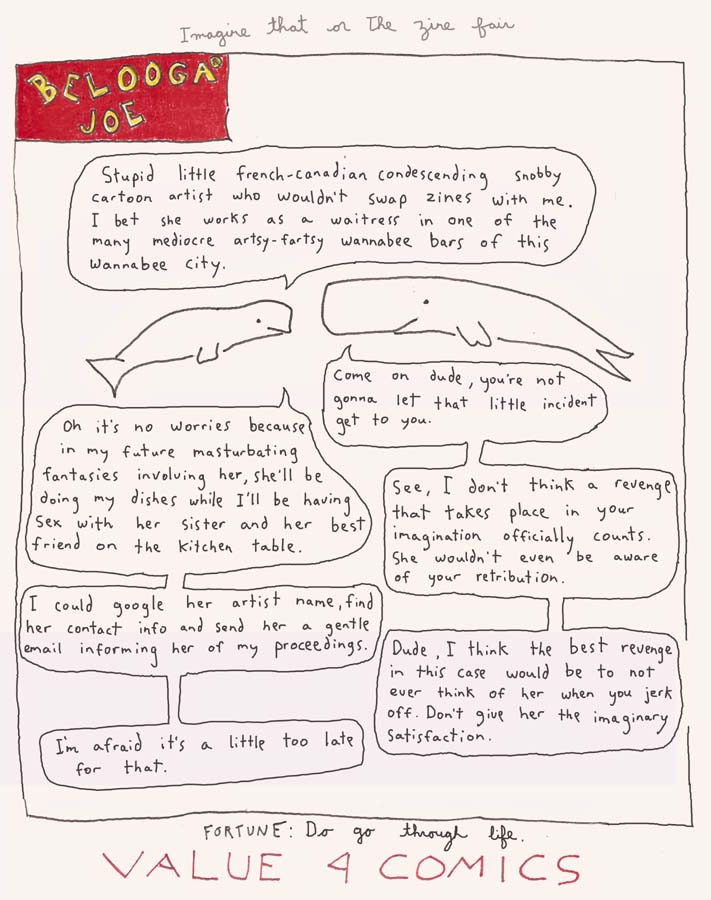 Imagine that or The zine fair
BELOOGA®
JOE
Stupid little french-canadian condescending snobby
cartoon artist who wouldn't swap zines with me.
I bet she works as a waitress in one of the
many mediocre artsy-fartsy wannabee bars of this
wannabee city.
Come on dude, you're not
gonna let that little incident
get to you.
Oh it's no worries because
in my future masturbating
fantasies involving her, she'll be
doing my dishes while I'll be having
sex with her sister and her best
friend on the kitchen table.
See, I don't think a revenge
that takes place in your
imagination officially counts.
She wouldn't even be aware
of your retribution.
I could google her artist name, find
her contact info and send her a gentle
email informing her of my proceedings.
Dude, I think the best revenge
in this case would be to not
ever think of her when you jerk
off. Don't give her the imaginary
satisfaction.
I'm afraid it's a little too late
for that.
FORTUNE: Do go through life.
VALUE 4 COMICS